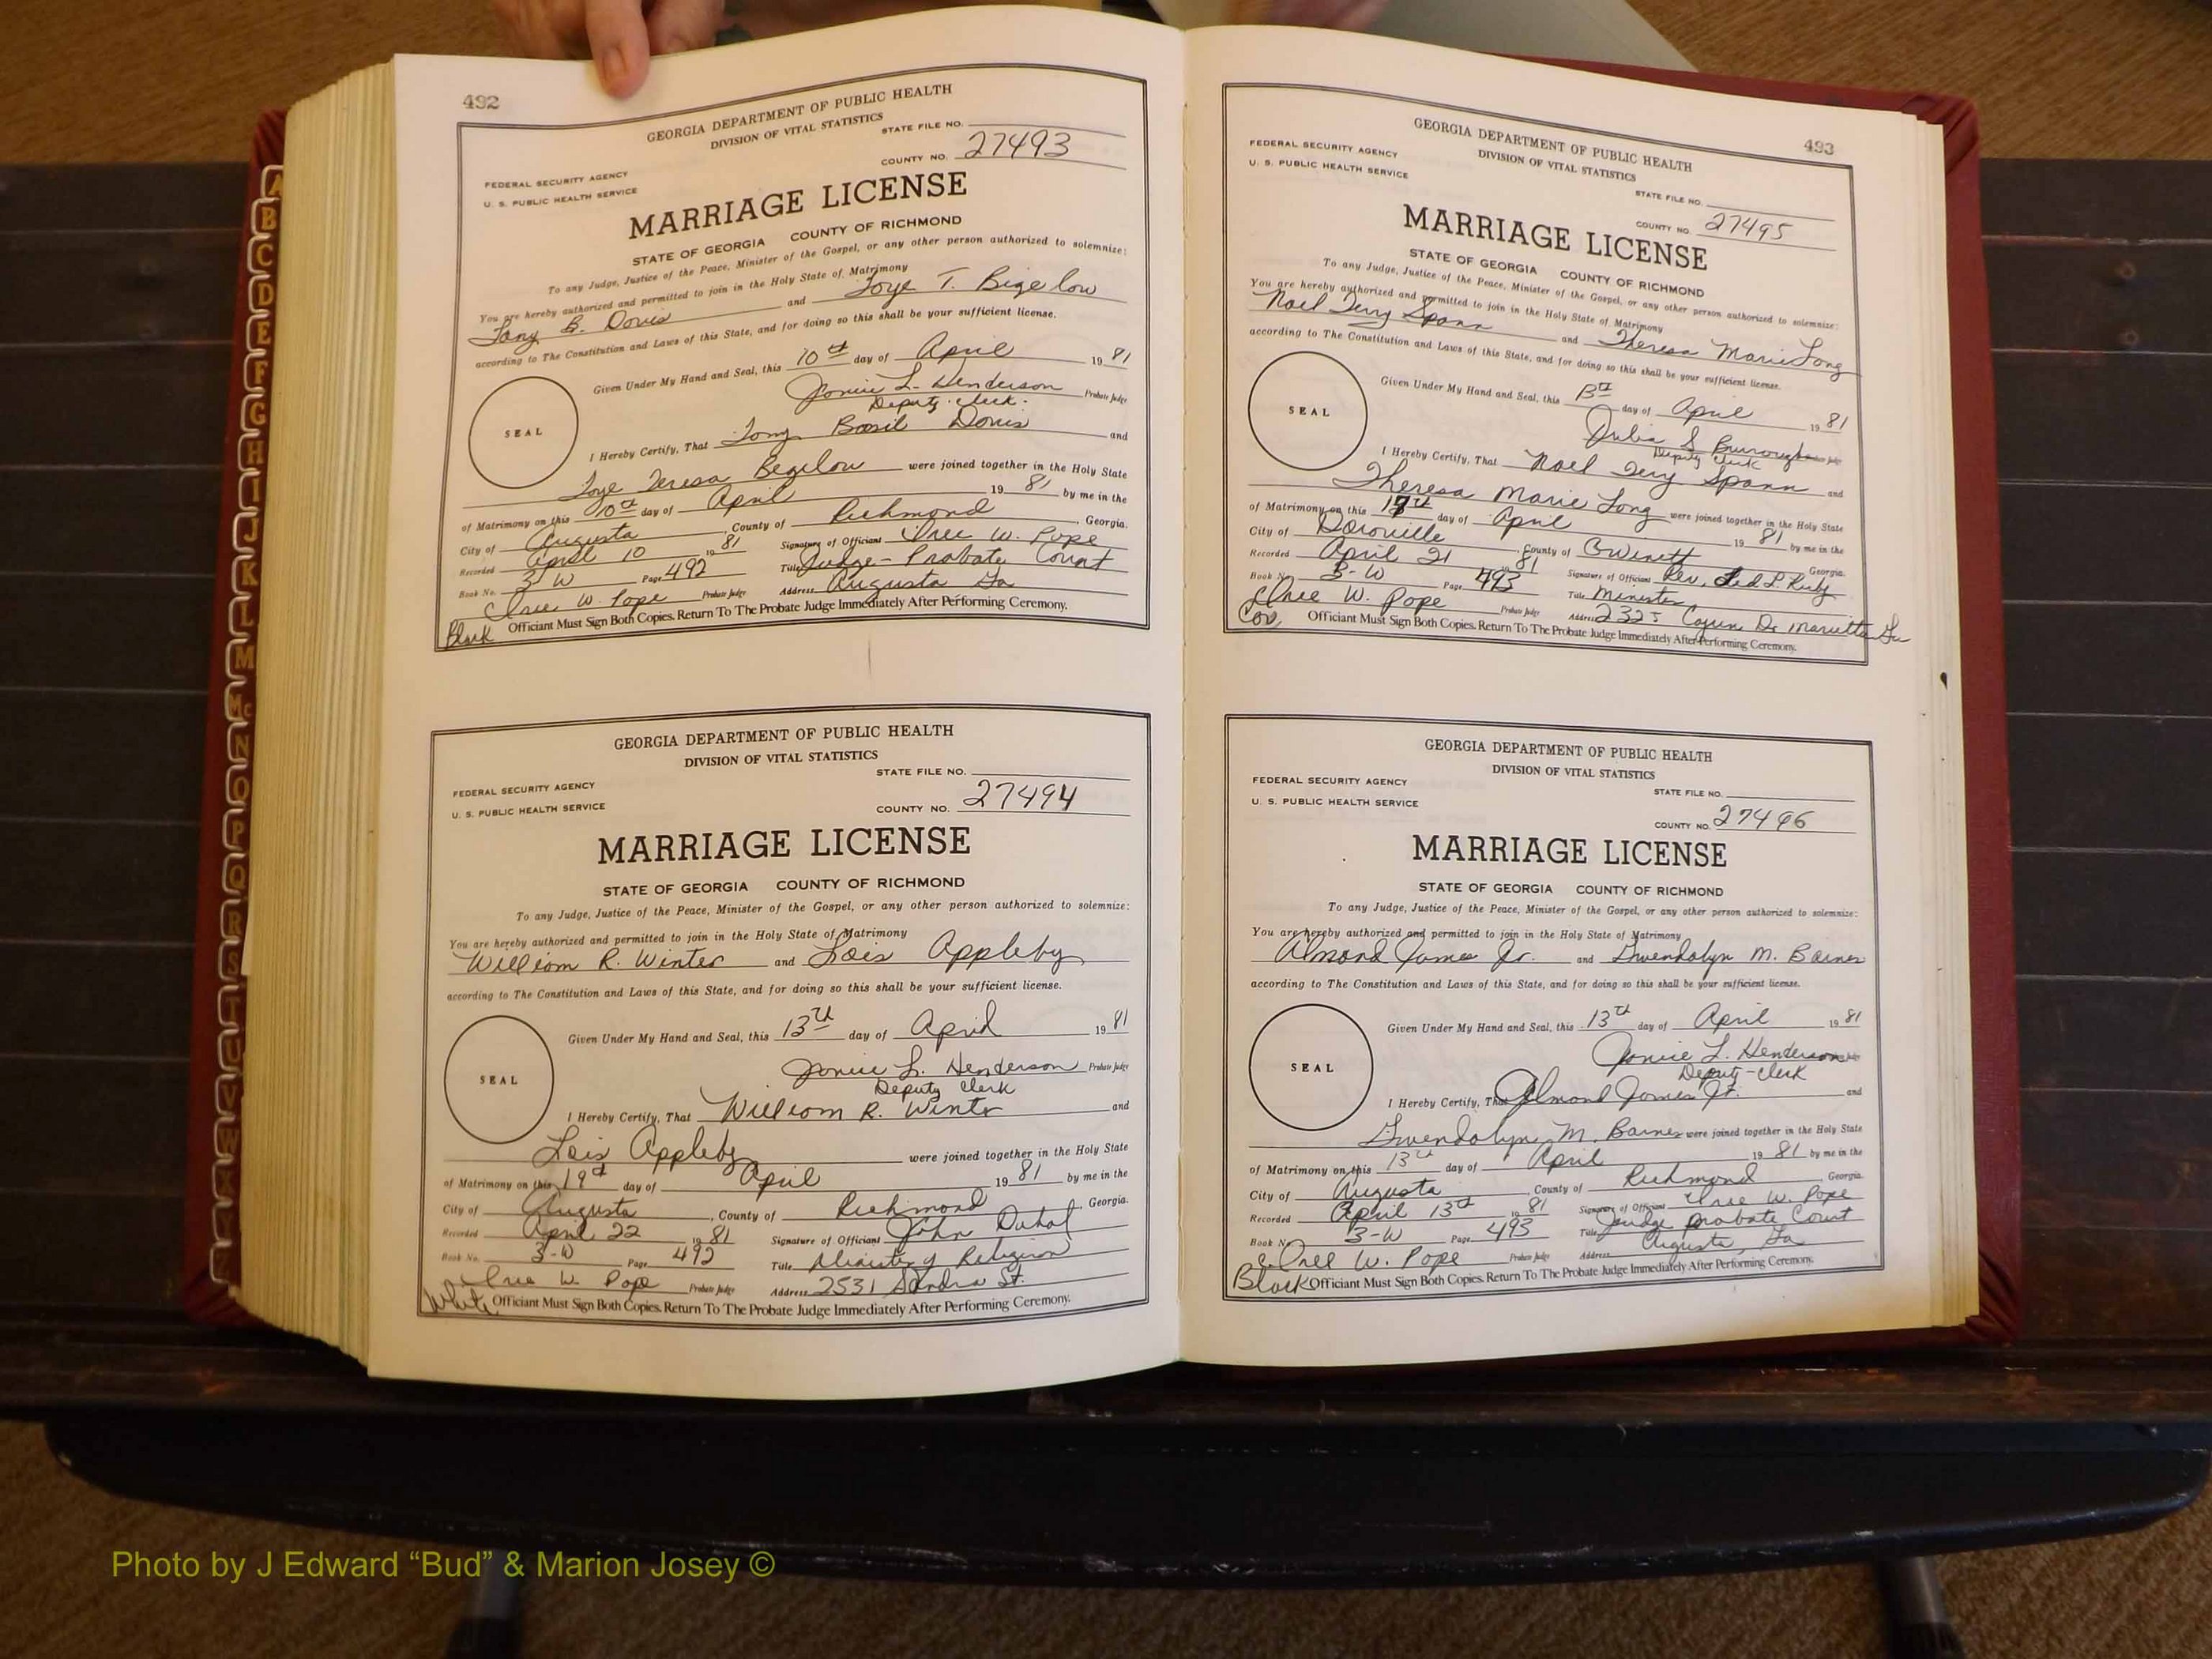 492
GEORGIA DEPARTMENT OF PUBLIC HEALTH
DIVISION OF VITAL STATISTICS
STATE FILE NO.
FEDERAL SECURITY AGENCY
COUNTY NO. 27493
U. S. PUBLIC HEALTH SERVICE
MARRIAGE LICENSE
STATE OF GEORGIA COUNTY OF RICHMOND
To any Judge, Justice of the Peace, Minister of the Gospel, or any other person authorized to solemnize:
You are hereby authorized and permitted to join in the Holy State of Matrimony
Tony B. Davis and Joye T. Bigelow
according to The Constitution and Laws of this State, and for doing so this shall be your sufficient license.
Given Under My Hand and Seal, this 10th day of April 1981
Janie L. Henderson Probate Judge
Deputy Clerk.
SEAL
I Hereby Certify, That Tony Basil Davis and
Joye Teresa Begelow were joined together in the Holy State
of Matrimony on this 10th day of April 1981 by me in the
City of Augusta, County of Richmond, Georgia.
Recorded April 10 1981 Signature of Officiant W. Pope
Book No. 3-W Page 492 Title Judge-Probate Court
W. Pope Probate Judge Address Augusta Ga
Black Officiant Must Sign Both Copies. Return To The Probate Judge Immediately After Performing Ceremony.
GEORGIA DEPARTMENT OF PUBLIC HEALTH
DIVISION OF VITAL STATISTICS
STATE FILE NO.
FEDERAL SECURITY AGENCY
COUNTY NO. 27494
U. S. PUBLIC HEALTH SERVICE
MARRIAGE LICENSE
STATE OF GEORGIA COUNTY OF RICHMOND
To any Judge, Justice of the Peace, Minister of the Gospel, or any other person authorized to solemnize:
You are hereby authorized and permitted to join in the Holy State of Matrimony
William R. Winter and Lois Appleby
according to The Constitution and Laws of this State, and for doing so this shall be your sufficient license.
Given Under My Hand and Seal, this 13th day of April 1981
Janie L. Henderson Probate Judge
Deputy Clerk
SEAL
I Hereby Certify, That William R. Winter and
Lois Appleby were joined together in the Holy State
of Matrimony on this 19th day of April 1981 by me in the
City of Augusta, County of Richmond, Georgia.
Recorded April 22 1981 Signature of Officiant John
Book No. 3-W Page 492 Title Minister of Religion
W. Pope Probate Judge Address 2531 Sandra St.
White Officiant Must Sign Both Copies. Return To The Probate Judge Immediately After Performing Ceremony.
493
GEORGIA DEPARTMENT OF PUBLIC HEALTH
DIVISION OF VITAL STATISTICS
FEDERAL SECURITY AGENCY
U. S. PUBLIC HEALTH SERVICE
STATE FILE NO.
COUNTY NO. 27495
MARRIAGE LICENSE
STATE OF GEORGIA COUNTY OF RICHMOND
To any Judge, Justice of the Peace, Minister of the Gospel, or any other person authorized to solemnize:
You are hereby authorized and permitted to join in the Holy State of Matrimony
Noel Terry Spann and Theresa Marie Long
according to The Constitution and Laws of this State, and for doing so this shall be your sufficient license.
Given Under My Hand and Seal, this 13th day of April 1981
Julia S Burroughs Probate Judge
Deputy Clerk
SEAL
I Hereby Certify, That Noel Terry Spann and
Theresa Marie Long were joined together in the Holy State
of Matrimony on this day of April 1981 by me in the
City of Doroville, County of Gwinett Georgia.
Recorded April 21 1981 Signature of Officiant Rev. L.
Book No. 3-W Page 493 Title Minister
W. Pope Probate Judge Address 2325 Dr Marietta Ga
Officiant Must Sign Both Copies. Return To The Probate Judge Immediately After Performing Ceremony.
GEORGIA DEPARTMENT OF PUBLIC HEALTH
DIVISION OF VITAL STATISTICS
FEDERAL SECURITY AGENCY
STATE FILE NO.
U. S. PUBLIC HEALTH SERVICE
COUNTY NO. 27496
MARRIAGE LICENSE
STATE OF GEORGIA COUNTY OF RICHMOND
To any Judge, Justice of the Peace, Minister of the Gospel, or any other person authorized to solemnize:
You are hereby authorized and permitted to join in the Holy State of Matrimony
Almond James Jr. and Gwendolyn M. Barnes
according to The Constitution and Laws of this State, and for doing so this shall be your sufficient license.
Given Under My Hand and Seal, this 13th day of April 1981
Janie L. Henderson Probate Judge
Deputy-Clerk
SEAL
I Hereby Certify, That Almond James Jr. and
Gwendolyn M. Barnes were joined together in the Holy State
of Matrimony on this 13th day of April 1981 by me in the
City of Augusta, County of Richmond Georgia.
Recorded April 13th 1981 Signature of Officiant W. Pope
Book No. 3-W Page 493 Title Judge Probate Court
W. Pope Probate Judge Address Augusta, Ga
Black Officiant Must Sign Both Copies. Return To The Probate Judge Immediately After Performing Ceremony.
A
B
C
D
E
F
G
H
I
J
K
L
M
Mc
N
O
P
Q
R
S
T
U
V
W
Photo by J Edward “Bud” & Marion Josey ©